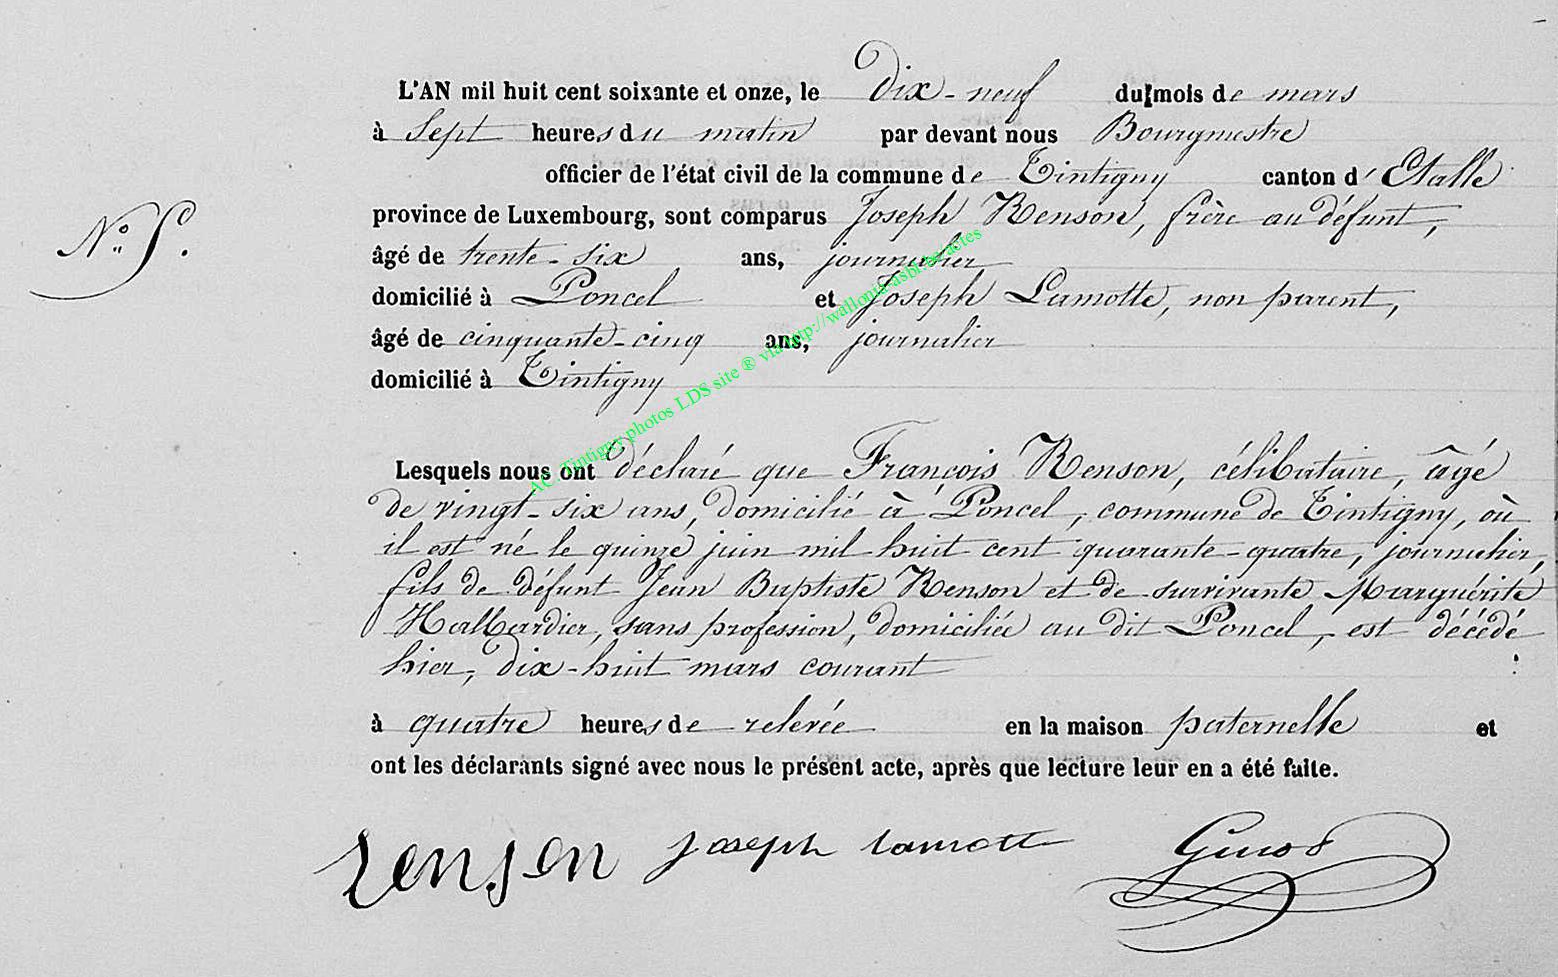 L'AN mil huit cent soixante et onze, le dix-neuf du mois de mars
à Sept heures du matin par devant nous Bourgmestre
officier de l'état civil de la commune de Tintigny canton d'Etalle
N° 5. province de Luxembourg, sont comparus Joseph Renson, frère au défunt,
âgé de trente-six ans, journalier
domicilié à Poncel et Joseph Lamotte, non parent,
âgé de cinquante-cinq ans, journalier
domicilié à Tintigny
AC Tintigny photos LDS site ® via http://wallonia-asbl.be/actes
Lesquels nous ont déclaré que François Renson, célibataire, âgé
de vingt-six ans, domicilié à Poncel, commune de Tintigny, où
il est né le quinze juin mil huit cent quarante-quatre, journalier,
fils de défunt Jean Baptiste Renson et de survivante Marguérite
Halbardier, sans profession, domiciliée au dit Poncel, est décédé
hier, dix-huit mars courant
à quatre heures de relevée en la maison paternelle et
ont les déclarants signé avec nous le présent acte, après que lecture leur en a été faite.
renson joseph lamotte